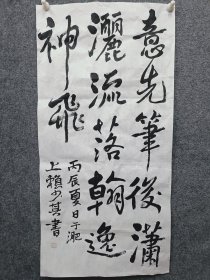 意先筆後瀟
灑流落翰逸
神飛
丙辰夏日于滬
上賴少其書